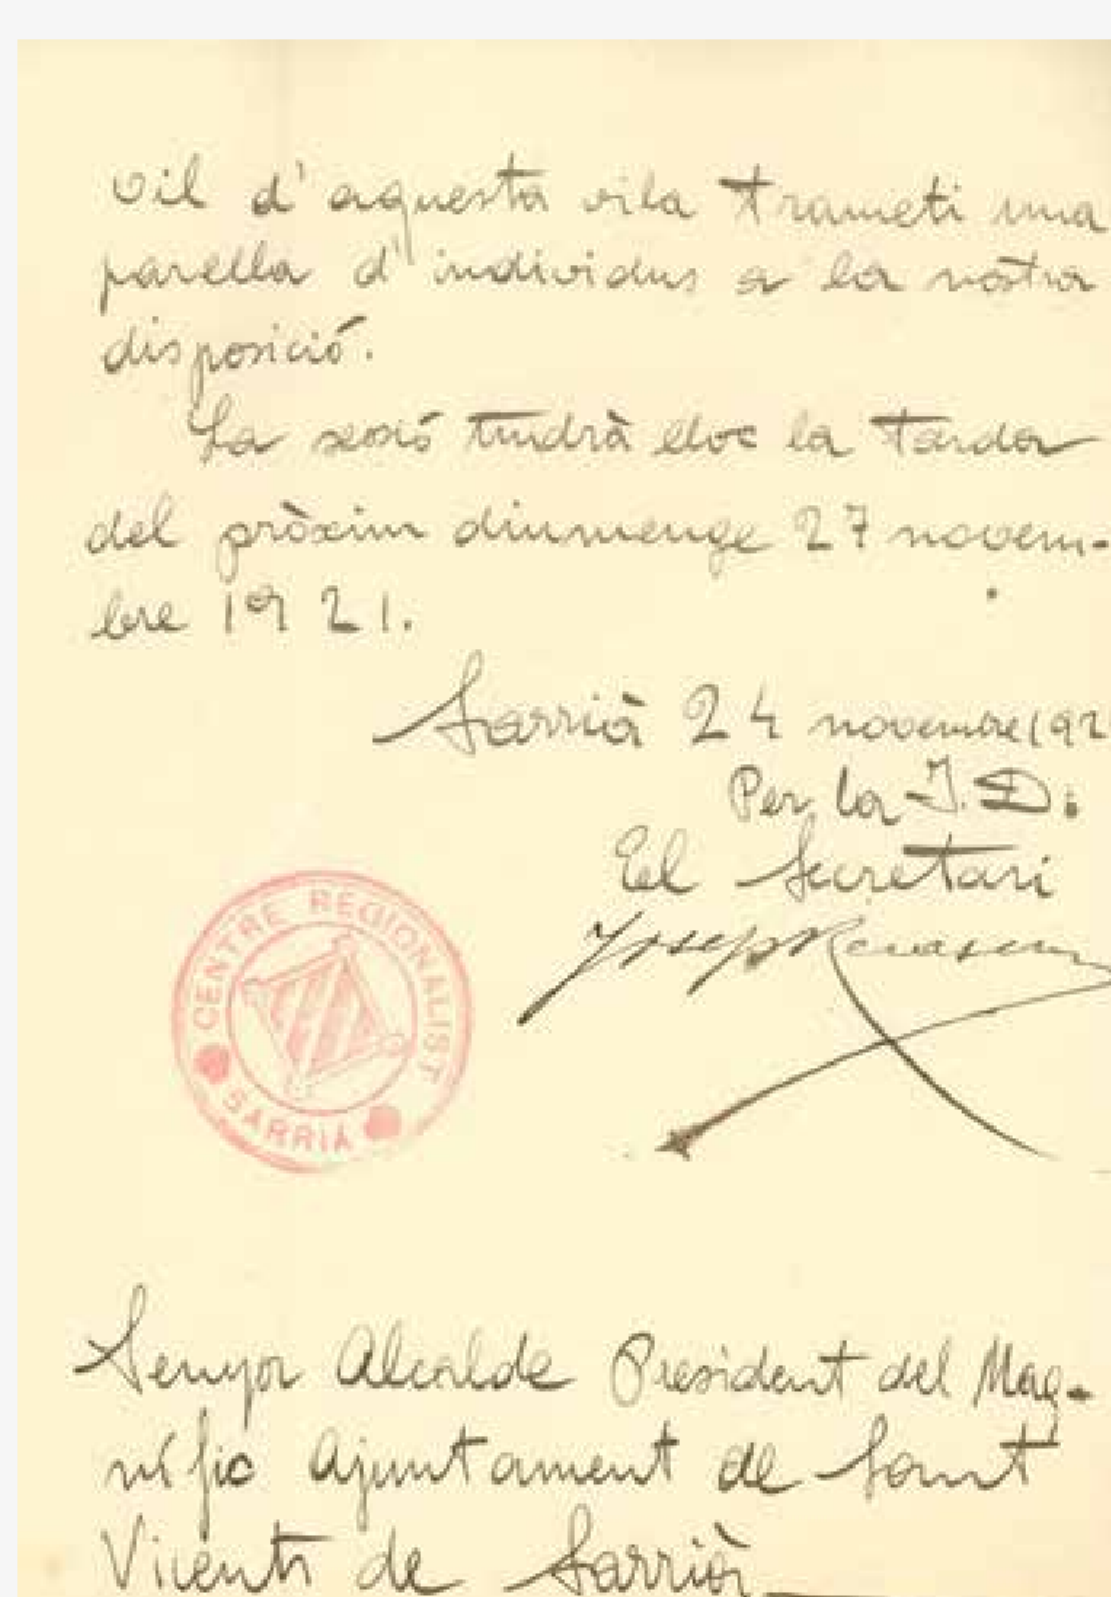 vil d'aquesta vila trameti una
parella d'individus a la nostra
disposició.
La sessió tindrà lloc la tarda
del pròxim diumenge 27 novem-
bre 1921.
Sarrià 24 novembre 192
Per la J. D.
El Secretari
Josep
CENTRE REGIONALISTA
SARRIÀ
Senyor Alcalde President del Mag-
nífic Ajuntament de Sant
Vicents de Sarrià